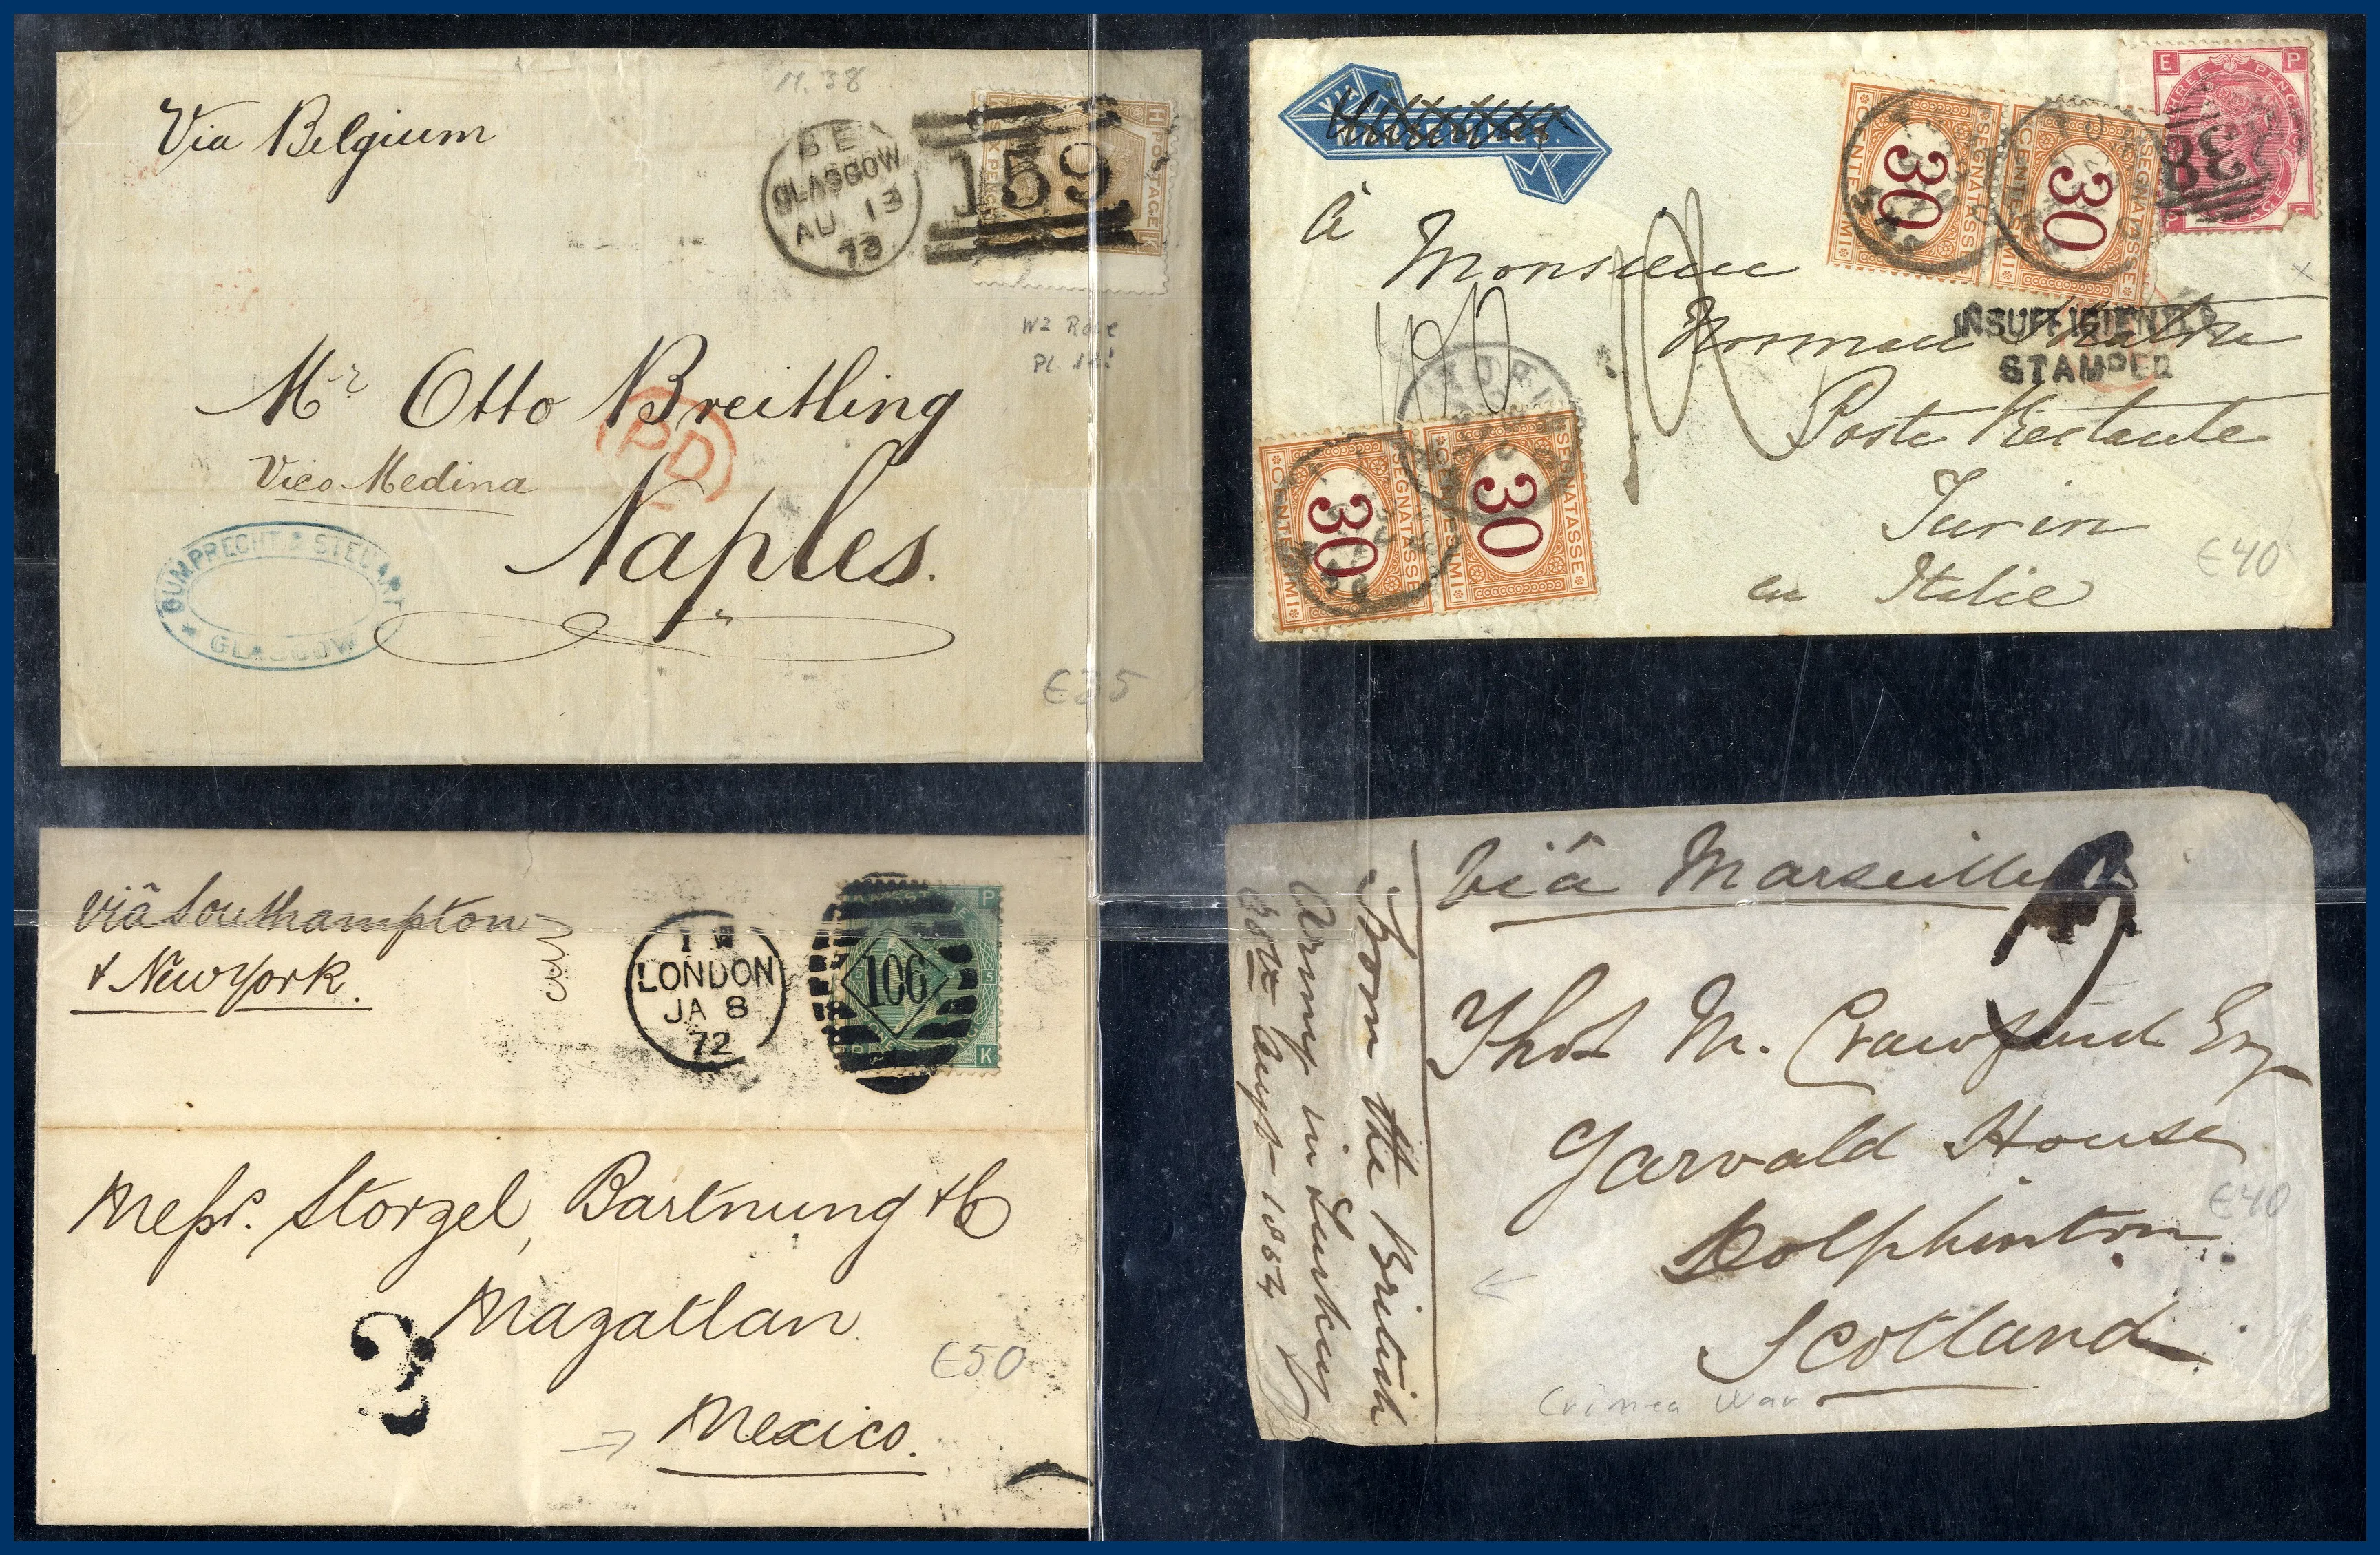 M. 38
Via Belgium
GLASGOW
AU 13
73
159
SIX PENCE
POSTAGE
H
K
Mr Otto Breitling
PD
Vico Medina
Naples.
GUMPRECHT & STEUART
GLASGOW
E P
THREE PENCE
L
38
SEGNATASSE
30
CENTESIMI
SEGNATASSE
30
CENTESIMI
à
Monsieur
Norman
INSUFFICIENTLY
STAMPED
Poste Restante
Turin
en Italie
€40
SEGNATASSE
30
CENTESIMI
SEGNATASSE
30
CENTESIMI
viâ Southampton
& New York.
LONDON
JA 8
72
106
P
5
K
Messrs. Storzel, Bartnung & Co
Mazatlan
2
€50
Mexico.
viâ Marseilles
From the British
Army in Turkey
30th Augt 1854
Thos M. Crawfurd Esq
Garvald House
€40
Dolphinton
Scotland
Crimea War